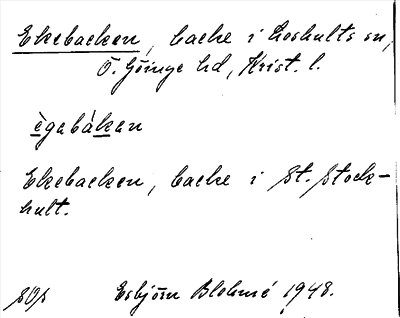 Ekebacken, backe i Loshults sn,
Ö. Göinge hd, Krist. l.
ègabákan
Ekebacken, backe i St. Stock-
hult.
SOS Esbjörn Blohmé 1948.